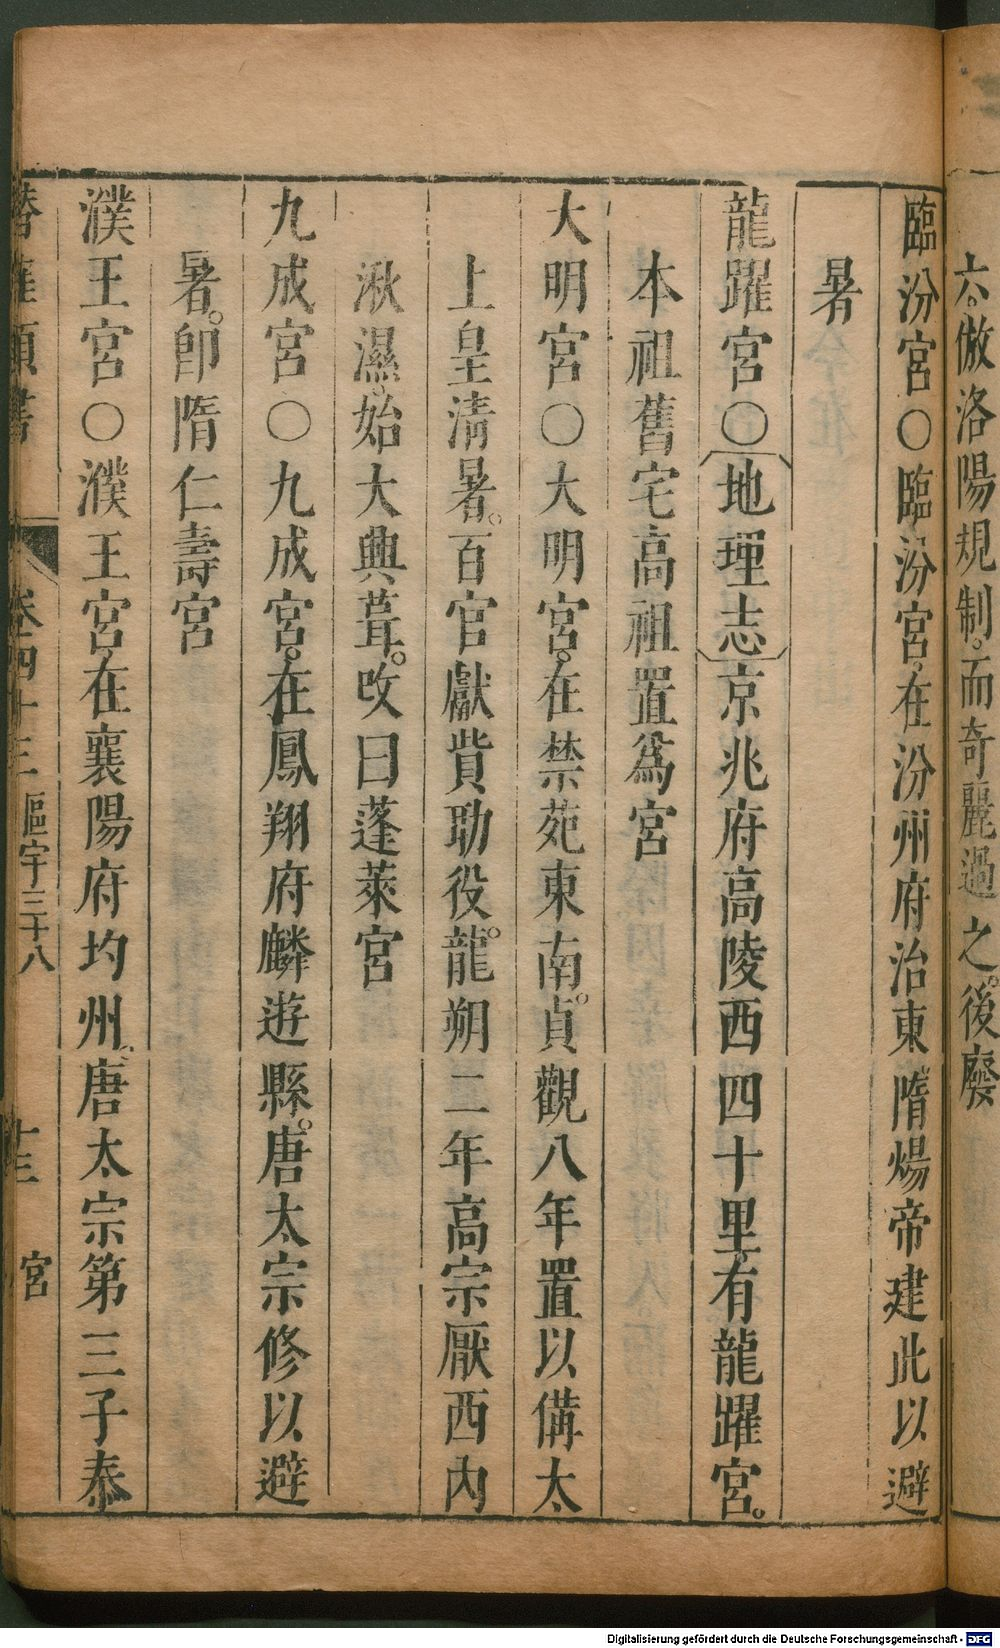 六。倣洛陽規制。而奇麗過之。後廢
臨汾宮○臨汾宮。在汾州府治東。隋煬帝建此以避
暑
龍躍宮○地理志京兆府高陵西四十里。有龍躍宮。
本祖舊宅高祖置爲宮
大明宮○大明宮。在禁苑東南。貞觀八年置以備太
上皇清暑。百官獻貲助役。龍朔二年高宗厭西內
湫濕。始大興葺。改曰蓬萊宮
九成宮○九成宮。在鳳翔府麟遊縣。唐太宗修以避
暑。卽隋仁壽宮
濮王宮○濮王宮。在襄陽府均州。唐太宗第三子泰
潛確類書 卷四十三 區宇三十八 十三 宮
Digitalisierung gefördert durch die Deutsche Forschungsgemeinschaft - DFG